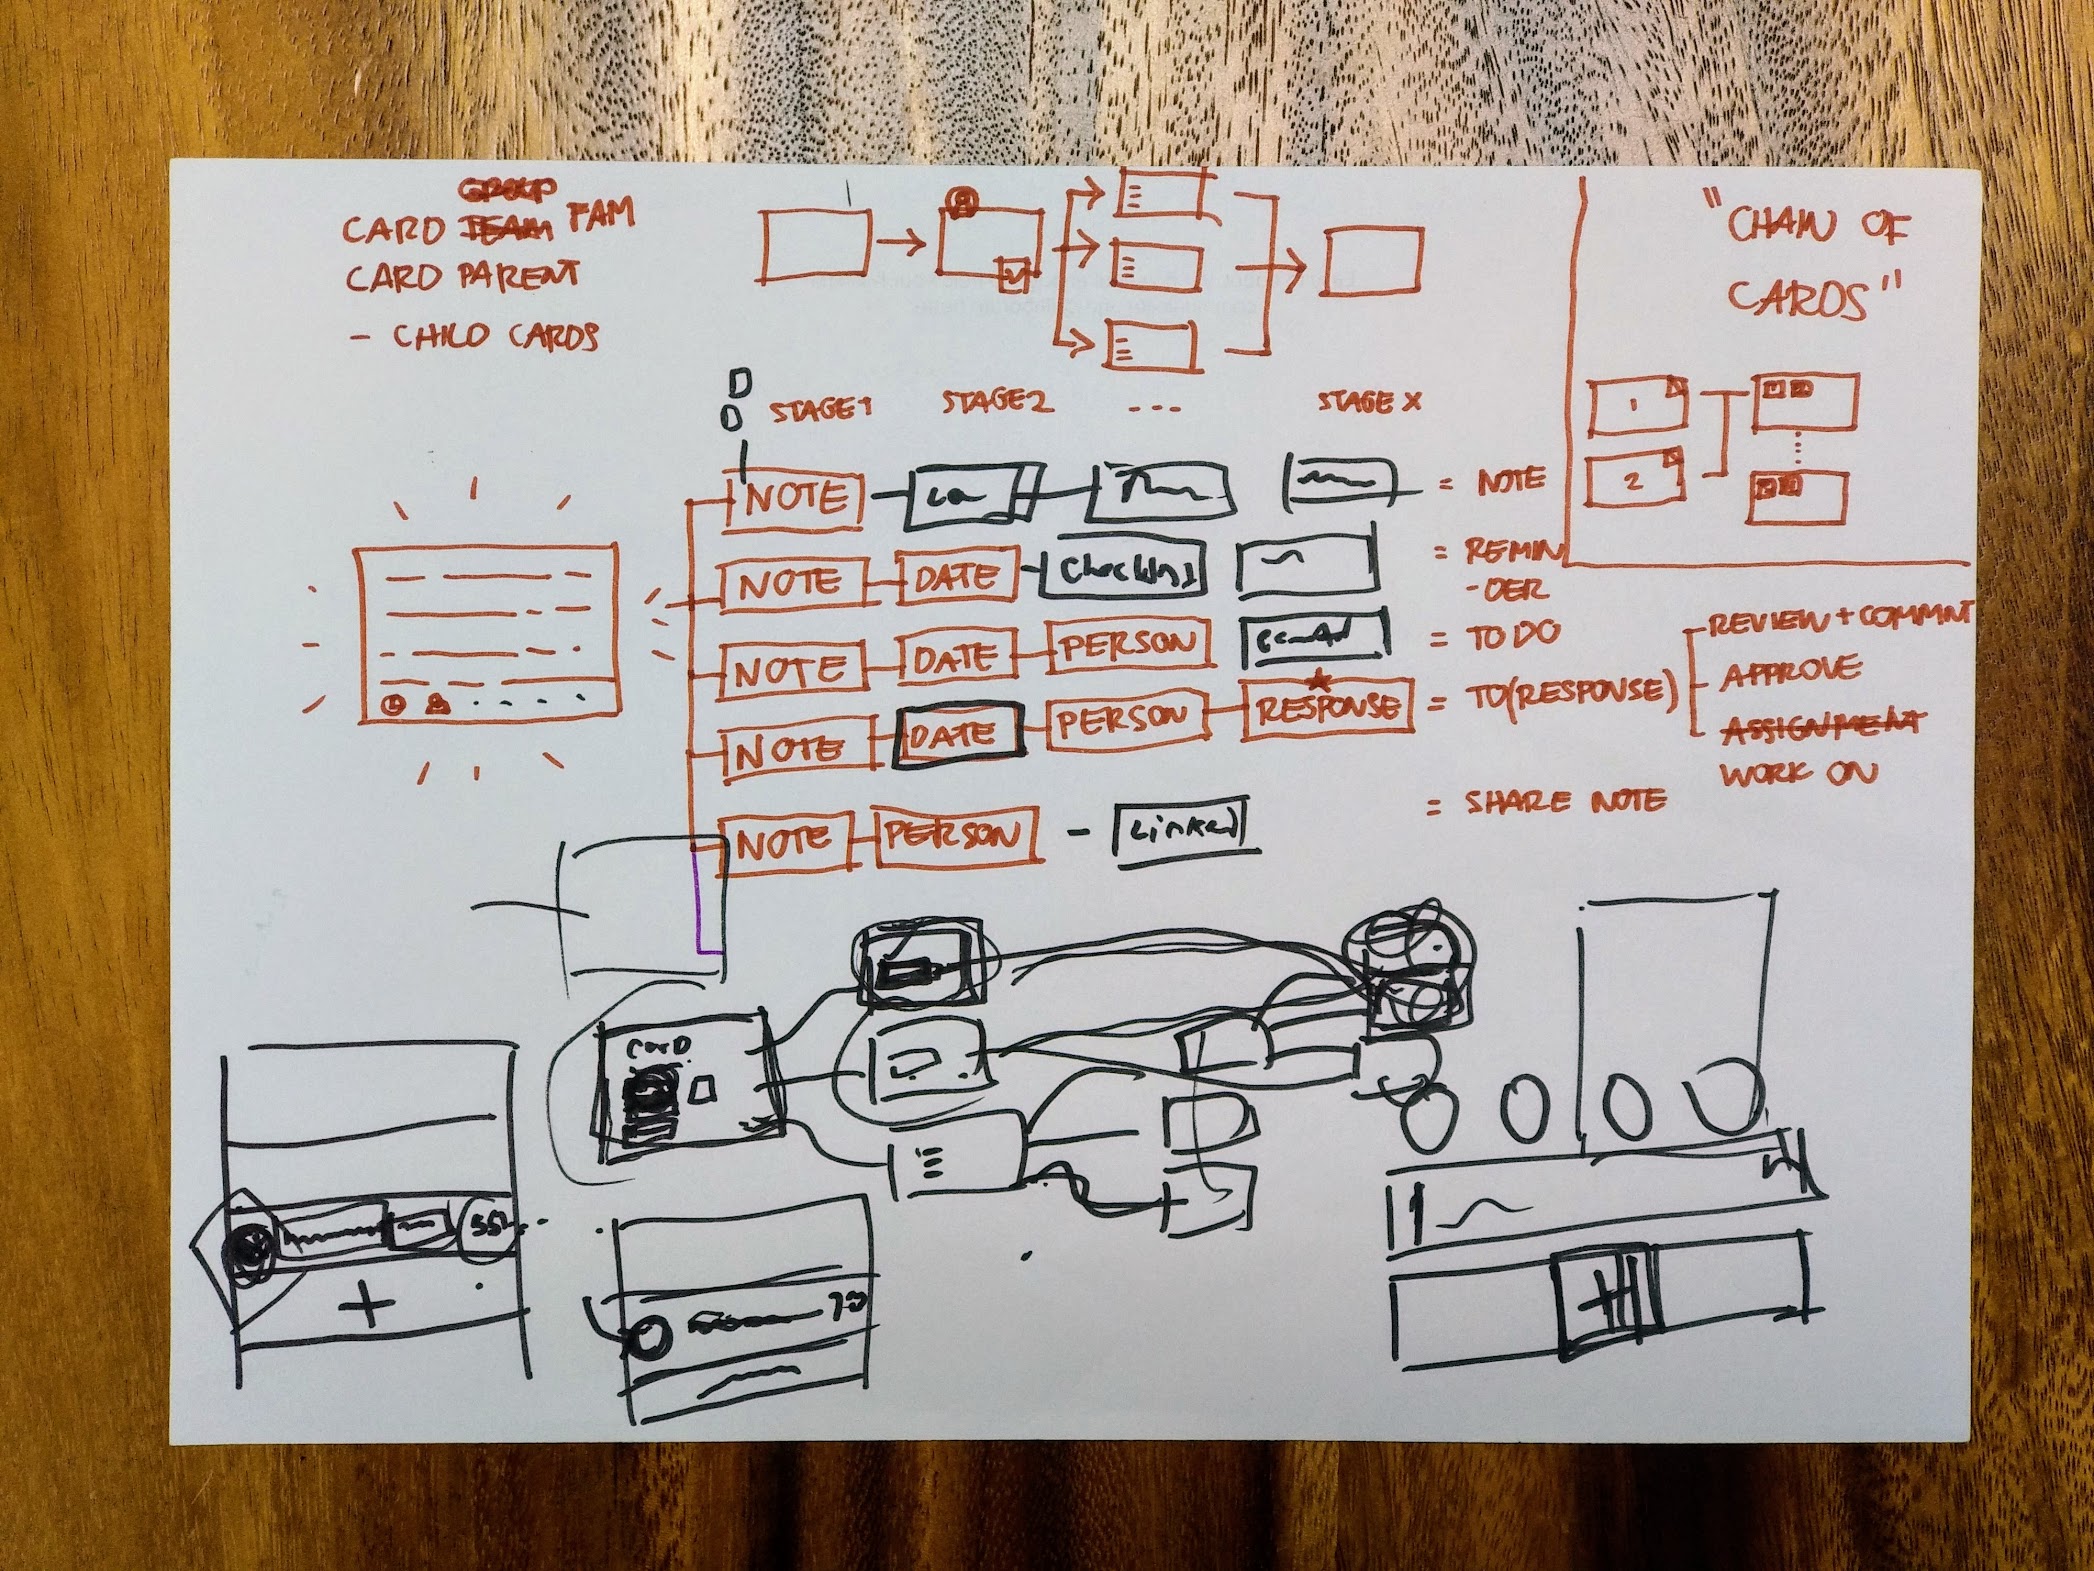 GROUP
CARD TEAM FAM
CARD PARENT
- CHILD CARDS
"CHAIN OF
CARDS"
1
2
STAGE 1 STAGE 2 ... STAGE X
NOTE = NOTE
NOTE DATE = REMIN
-DER
NOTE DATE PERSON = TO DO
NOTE DATE PERSON RESPONSE = TO(RESPONSE)
REVIEW + COMMNT
APPROVE
ASSIGNMENT
WORK ON
NOTE PERSON - Linked = SHARE NOTE
CARD